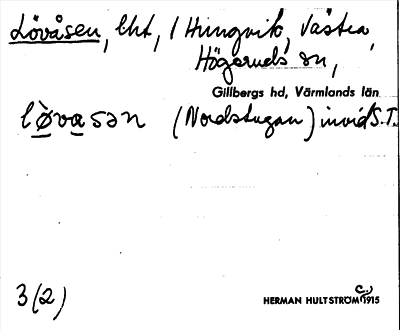 Lövåsen, lht, / Hungvik, Västra,
Högeruds sn,
Gillbergs hd, Värmlands län
lòvasən (Nordstugan) invid S.T.
3(2)
HERMAN HULTSTRÖM C:a 1915